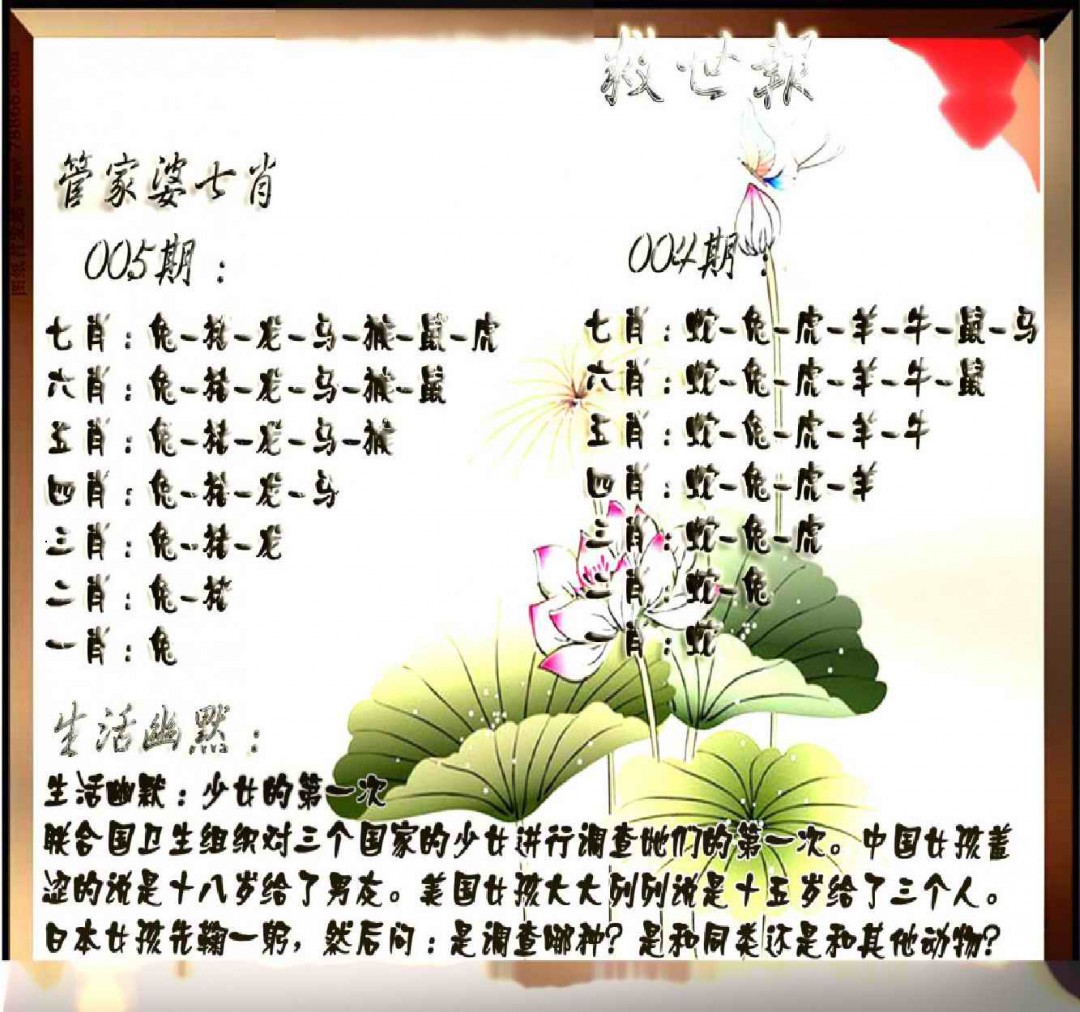 救世報
管家婆七肖
005期：
七肖：兔-猪-龙-马-猴-鼠-虎
六肖：兔-猪-龙-马-猴-鼠
五肖：兔-猪-龙-马-猴
四肖：兔-猪-龙-马
三肖：兔-猪-龙
二肖：兔-猪
一肖：兔
004期：
七肖：蛇-兔-虎-羊-牛-鼠-马
六肖：蛇-兔-虎-羊-牛-鼠
五肖：蛇-兔-虎-羊-牛
四肖：蛇-兔-虎-羊
三肖：蛇-兔-虎
二肖：蛇-兔
一肖：蛇
生活幽默：
生活幽默：少女的第一次
联合国卫生组织对三个国家的少女进行调查她们的第一次。中国女孩羞
涩的说是十八岁给了男友。美国女孩大大列列说是十五岁给了三个人。
日本女孩先鞠一躬，然后问：是调查哪种？是和同类还是和其他动物？